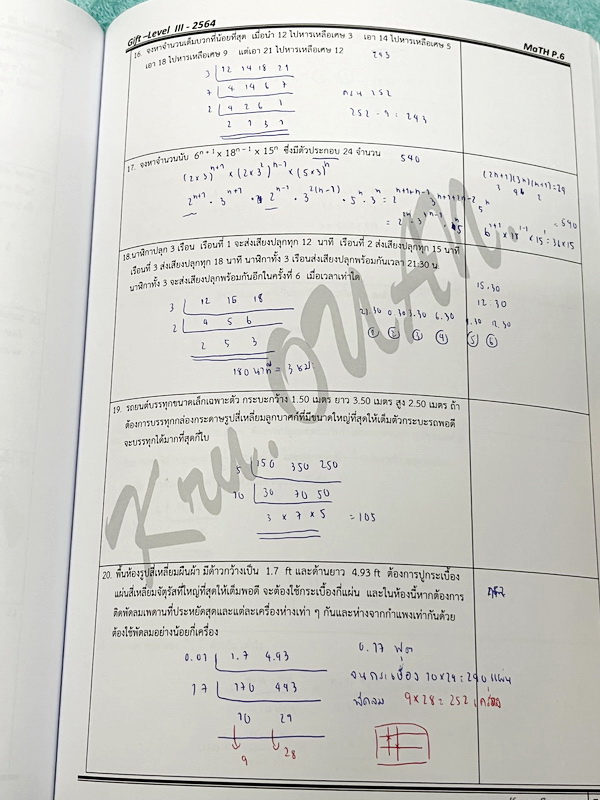 Gift –Level III - 2564
MaTH P.6
16. จงหาจำนวนเต็มบวกที่น้อยที่สุด เมื่อนำ 12 ไปหารเหลือเศษ 3 เอา 14 ไปหารเหลือเศษ 5
เอา 18 ไปหารเหลือเศษ 9 แต่เอา 21 ไปหารเหลือเศษ 12
243
3 12 14 18 21
7 4 14 6 7
2 4 2 6 1
2 1 3 1
ครน 252
252 - 9 = 243
17. จงหาจำนวนนับ 6ⁿ⁺¹ x 18ⁿ⁻¹ x 15ⁿ ซึ่งมีตัวประกอบ 24 จำนวน
540
(2×3)ⁿ⁺¹ × (2×3²)ⁿ⁻¹ × (5×3)ⁿ
= 540
18.นาฬิกาปลุก 3 เรือน เรือนที่ 1 จะส่งเสียงปลุกทุก 12 นาที เรือนที่ 2 ส่งเสียงปลุกทุก 15 นาที
เรือนที่ 3 ส่งเสียงปลุกทุก 18 นาที นาฬิกาทั้ง 3 เรือนส่งเสียงปลุกพร้อมกันเวลา 21:30 น.
นาฬิกาทั้ง 3 จะส่งเสียงปลุกพร้อมกันอีกในครั้งที่ 6 เมื่อเวลาเท่าใด
15.30
12:30
3 12 15 18
21.30 0.30 3.30 6.30 9.30 12.30
2 4 5 6
① ② ③ ④ ⑤ ⑥
2 5 3
180 นาที = 3 ชม
19. รถยนต์บรรทุกขนาดเล็กเฉพาะตัว กระบะกว้าง 1.50 เมตร ยาว 3.50 เมตร สูง 2.50 เมตร ถ้า
ต้องการบรรทุกกล่องกระดาษรูปสี่เหลี่ยมลูกบาศก์ที่มีขนาดใหญ่ที่สุดให้เต็มตัวกระบะรถพอดี
จะบรรทุกได้มากที่สุดกี่ใบ
5 150 350 250
10 30 70 50
3 × 7 × 5 = 105
20. พื้นห้องรูปสี่เหลี่ยมผืนผ้า มีด้าวกว้างเป็น 1.7 ft และด้านยาว 4.93 ft ต้องการปูกระเบื้อง
แผ่นสี่เหลี่ยมจัตุรัสที่ใหญ่ที่สุดให้เต็มพอดี จะต้องใช้กระเบื้องกี่แผ่น และในห้องนี้หากต้องการ
ติดพัดลมเพดานที่ประหยัดสุดและแต่ละเครื่องห่างเท่า ๆ กันและห่างจากกำแพงเท่ากันด้วย
ต้องใช้พัดลมอย่างน้อยกี่เครื่อง
0.01 1.7 4.93
0.17 ฟุต
17 170 493
จน กระเบื้อง 10×29 = 290 แผ่น
10 29
พัดลม 9×28 = 252 เครื่อง
9 28
Kru. OUAN.